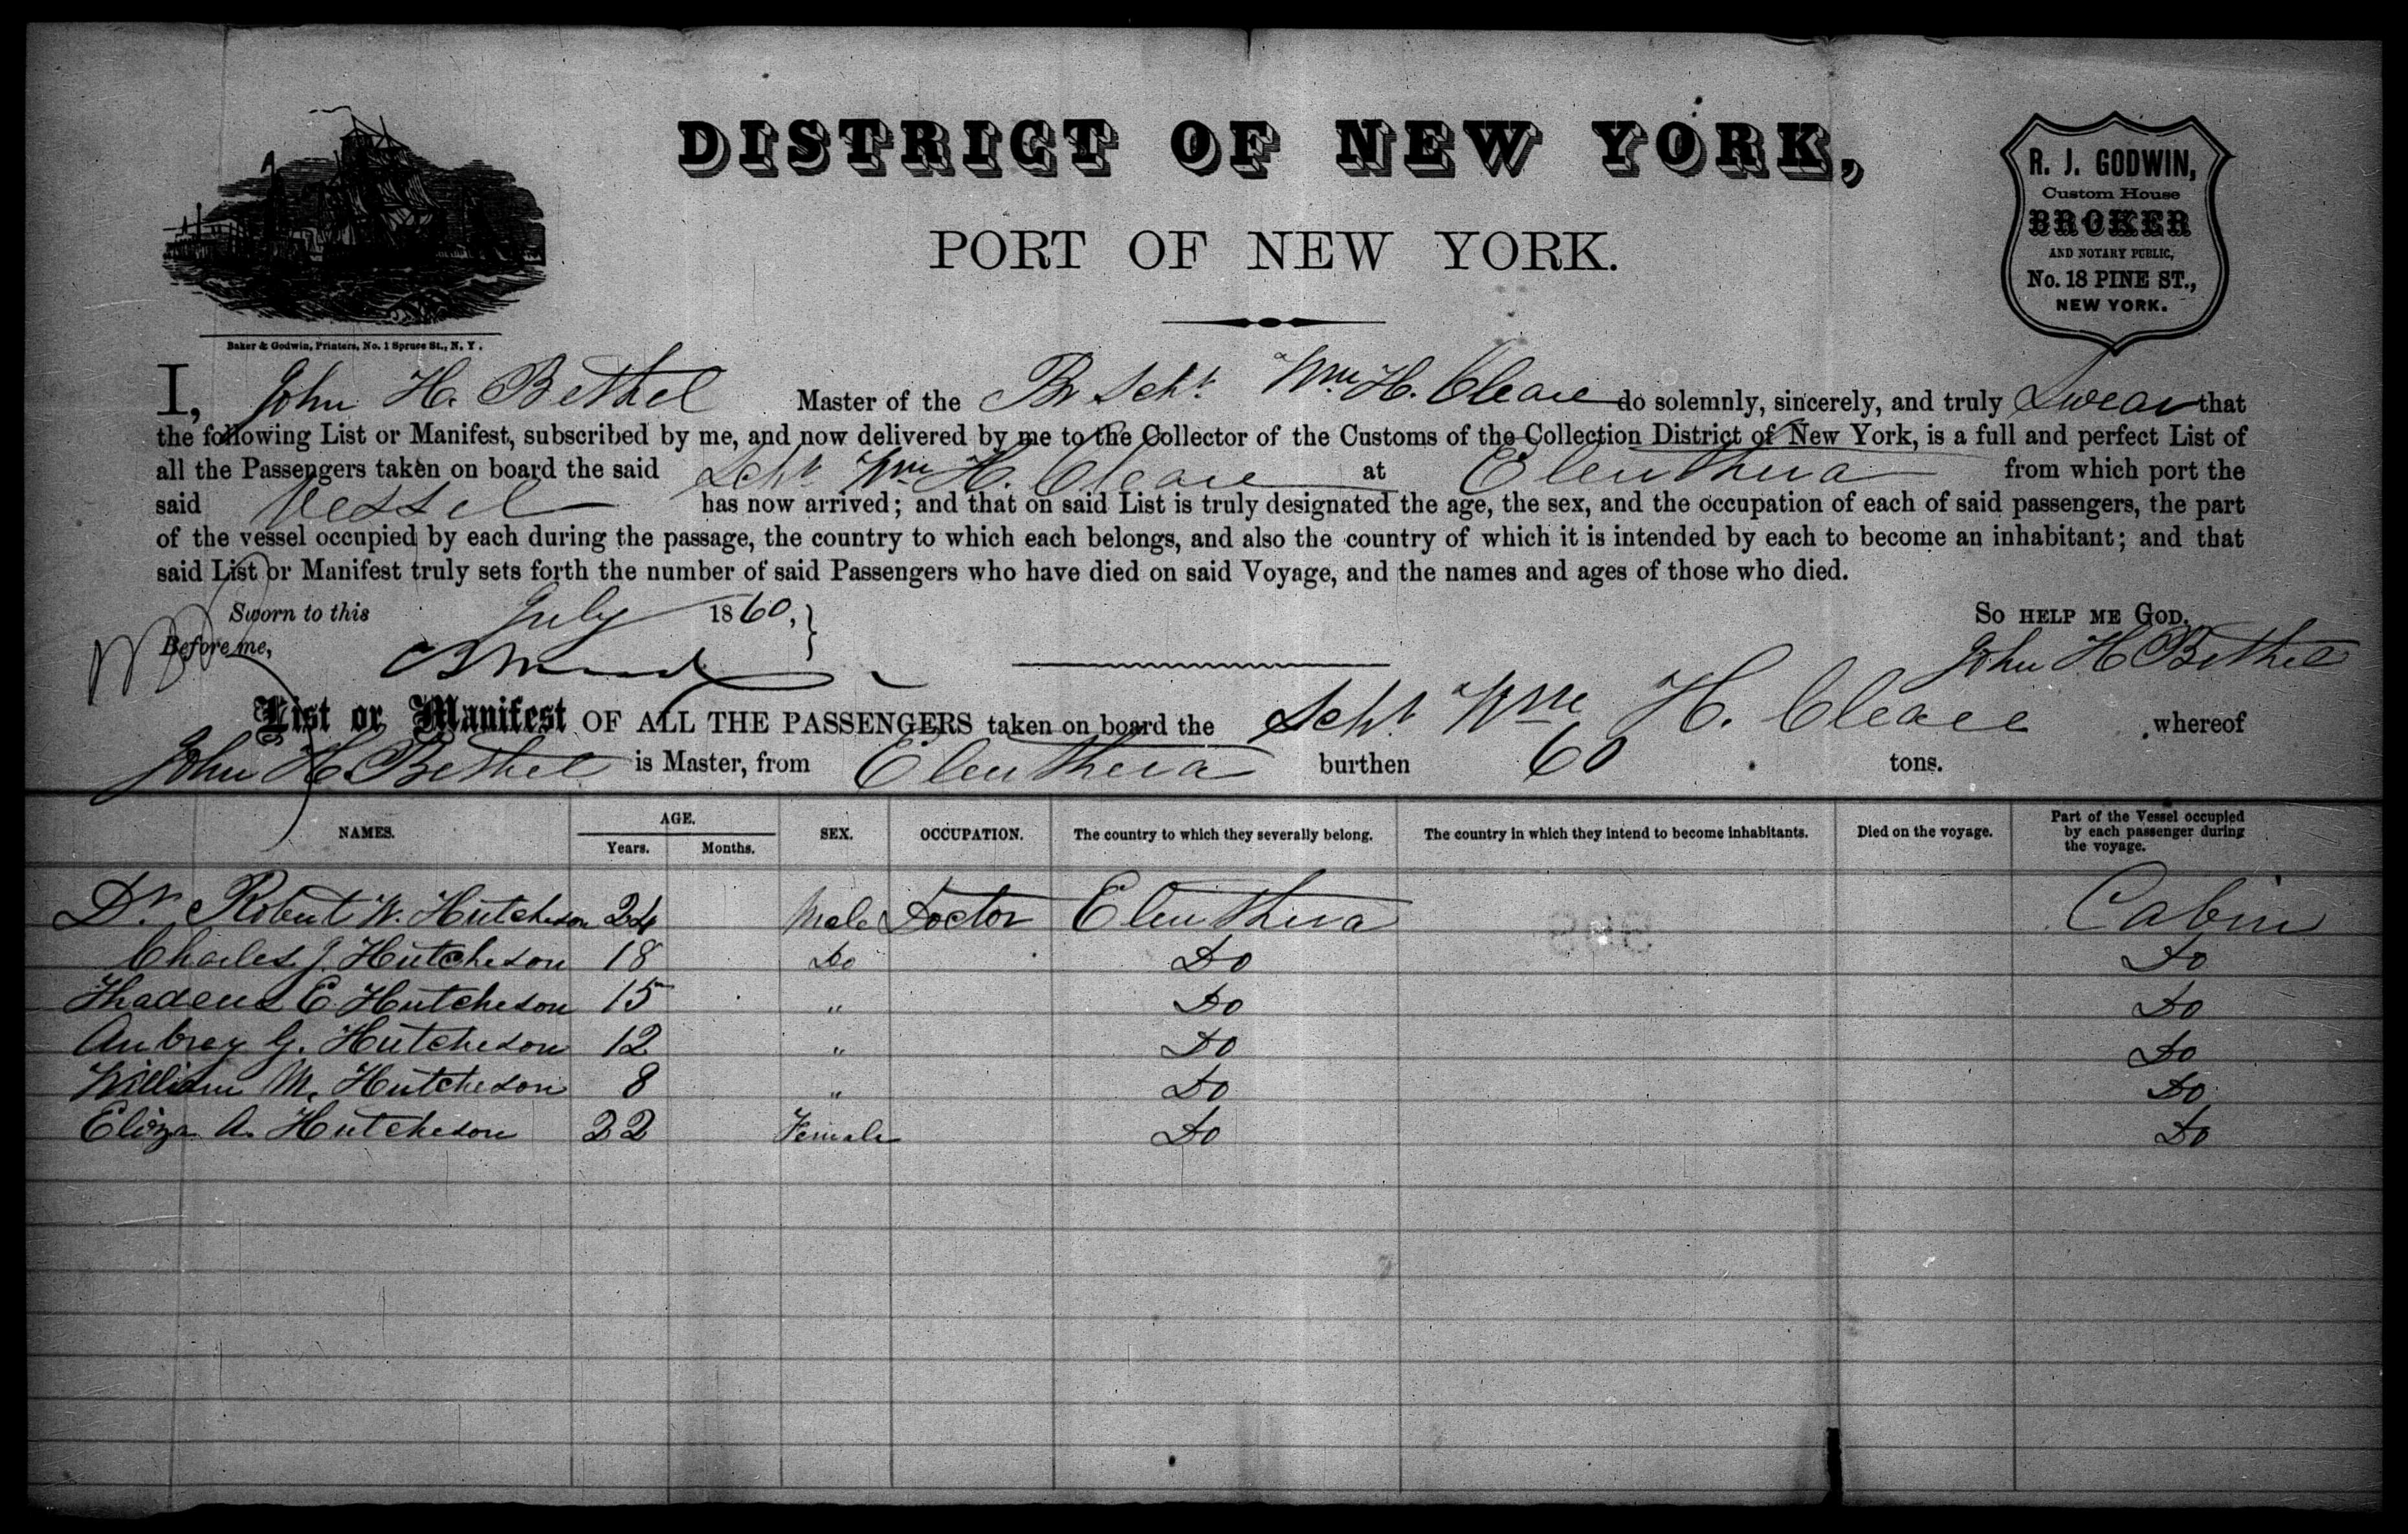 DISTRICT OF NEW YORK,
PORT OF NEW YORK.
R. J. GODWIN,
Custom House
BROKER
AND NOTARY PUBLIC,
No. 18 PINE ST.,
NEW YORK.
Baker & Godwin, Printers, No. 1 Spruce St., N. Y.
I, John H. Bethel Master of the Br Schr Wm H. Cleare do solemnly, sincerely, and truly Swear that
the following List or Manifest, subscribed by me, and now delivered by me to the Collector of the Customs of the Collection District of New York, is a full and perfect List of
all the Passengers taken on board the said Schr Wm H. Cleare at Eleuthera from which port the
said Vessel has now arrived; and that on said List is truly designated the age, the sex, and the occupation of each of said passengers, the part
of the vessel occupied by each during the passage, the country to which each belongs, and also the country of which it is intended by each to become an inhabitant; and that
said List or Manifest truly sets forth the number of said Passengers who have died on said Voyage, and the names and ages of those who died.
Sworn to this July 1860, So HELP ME GOD.
Before me, John H Bethel
List or Manifest OF ALL THE PASSENGERS taken on board the Schr Wm H. Cleare whereof
John H. Bethel is Master, from Eleuthera burthen 60 tons.
NAMES. AGE. Years. Months. SEX. OCCUPATION. The country to which they severally belong. The country in which they intend to become inhabitants. Died on the voyage. Part of the Vessel occupied by each passenger during the voyage.
Dr Robert W. Hutcheson 24 Male Doctor Eleuthera Cabin
Charles J. Hutcheson 18 Do Do Do
Thadeus E. Hutcheson 15 " Do Do
Aubrey G. Hutcheson 12 " Do Do
William M. Hutcheson 8 " Do Do
Eliza A. Hutcheson 22 Female Do Do